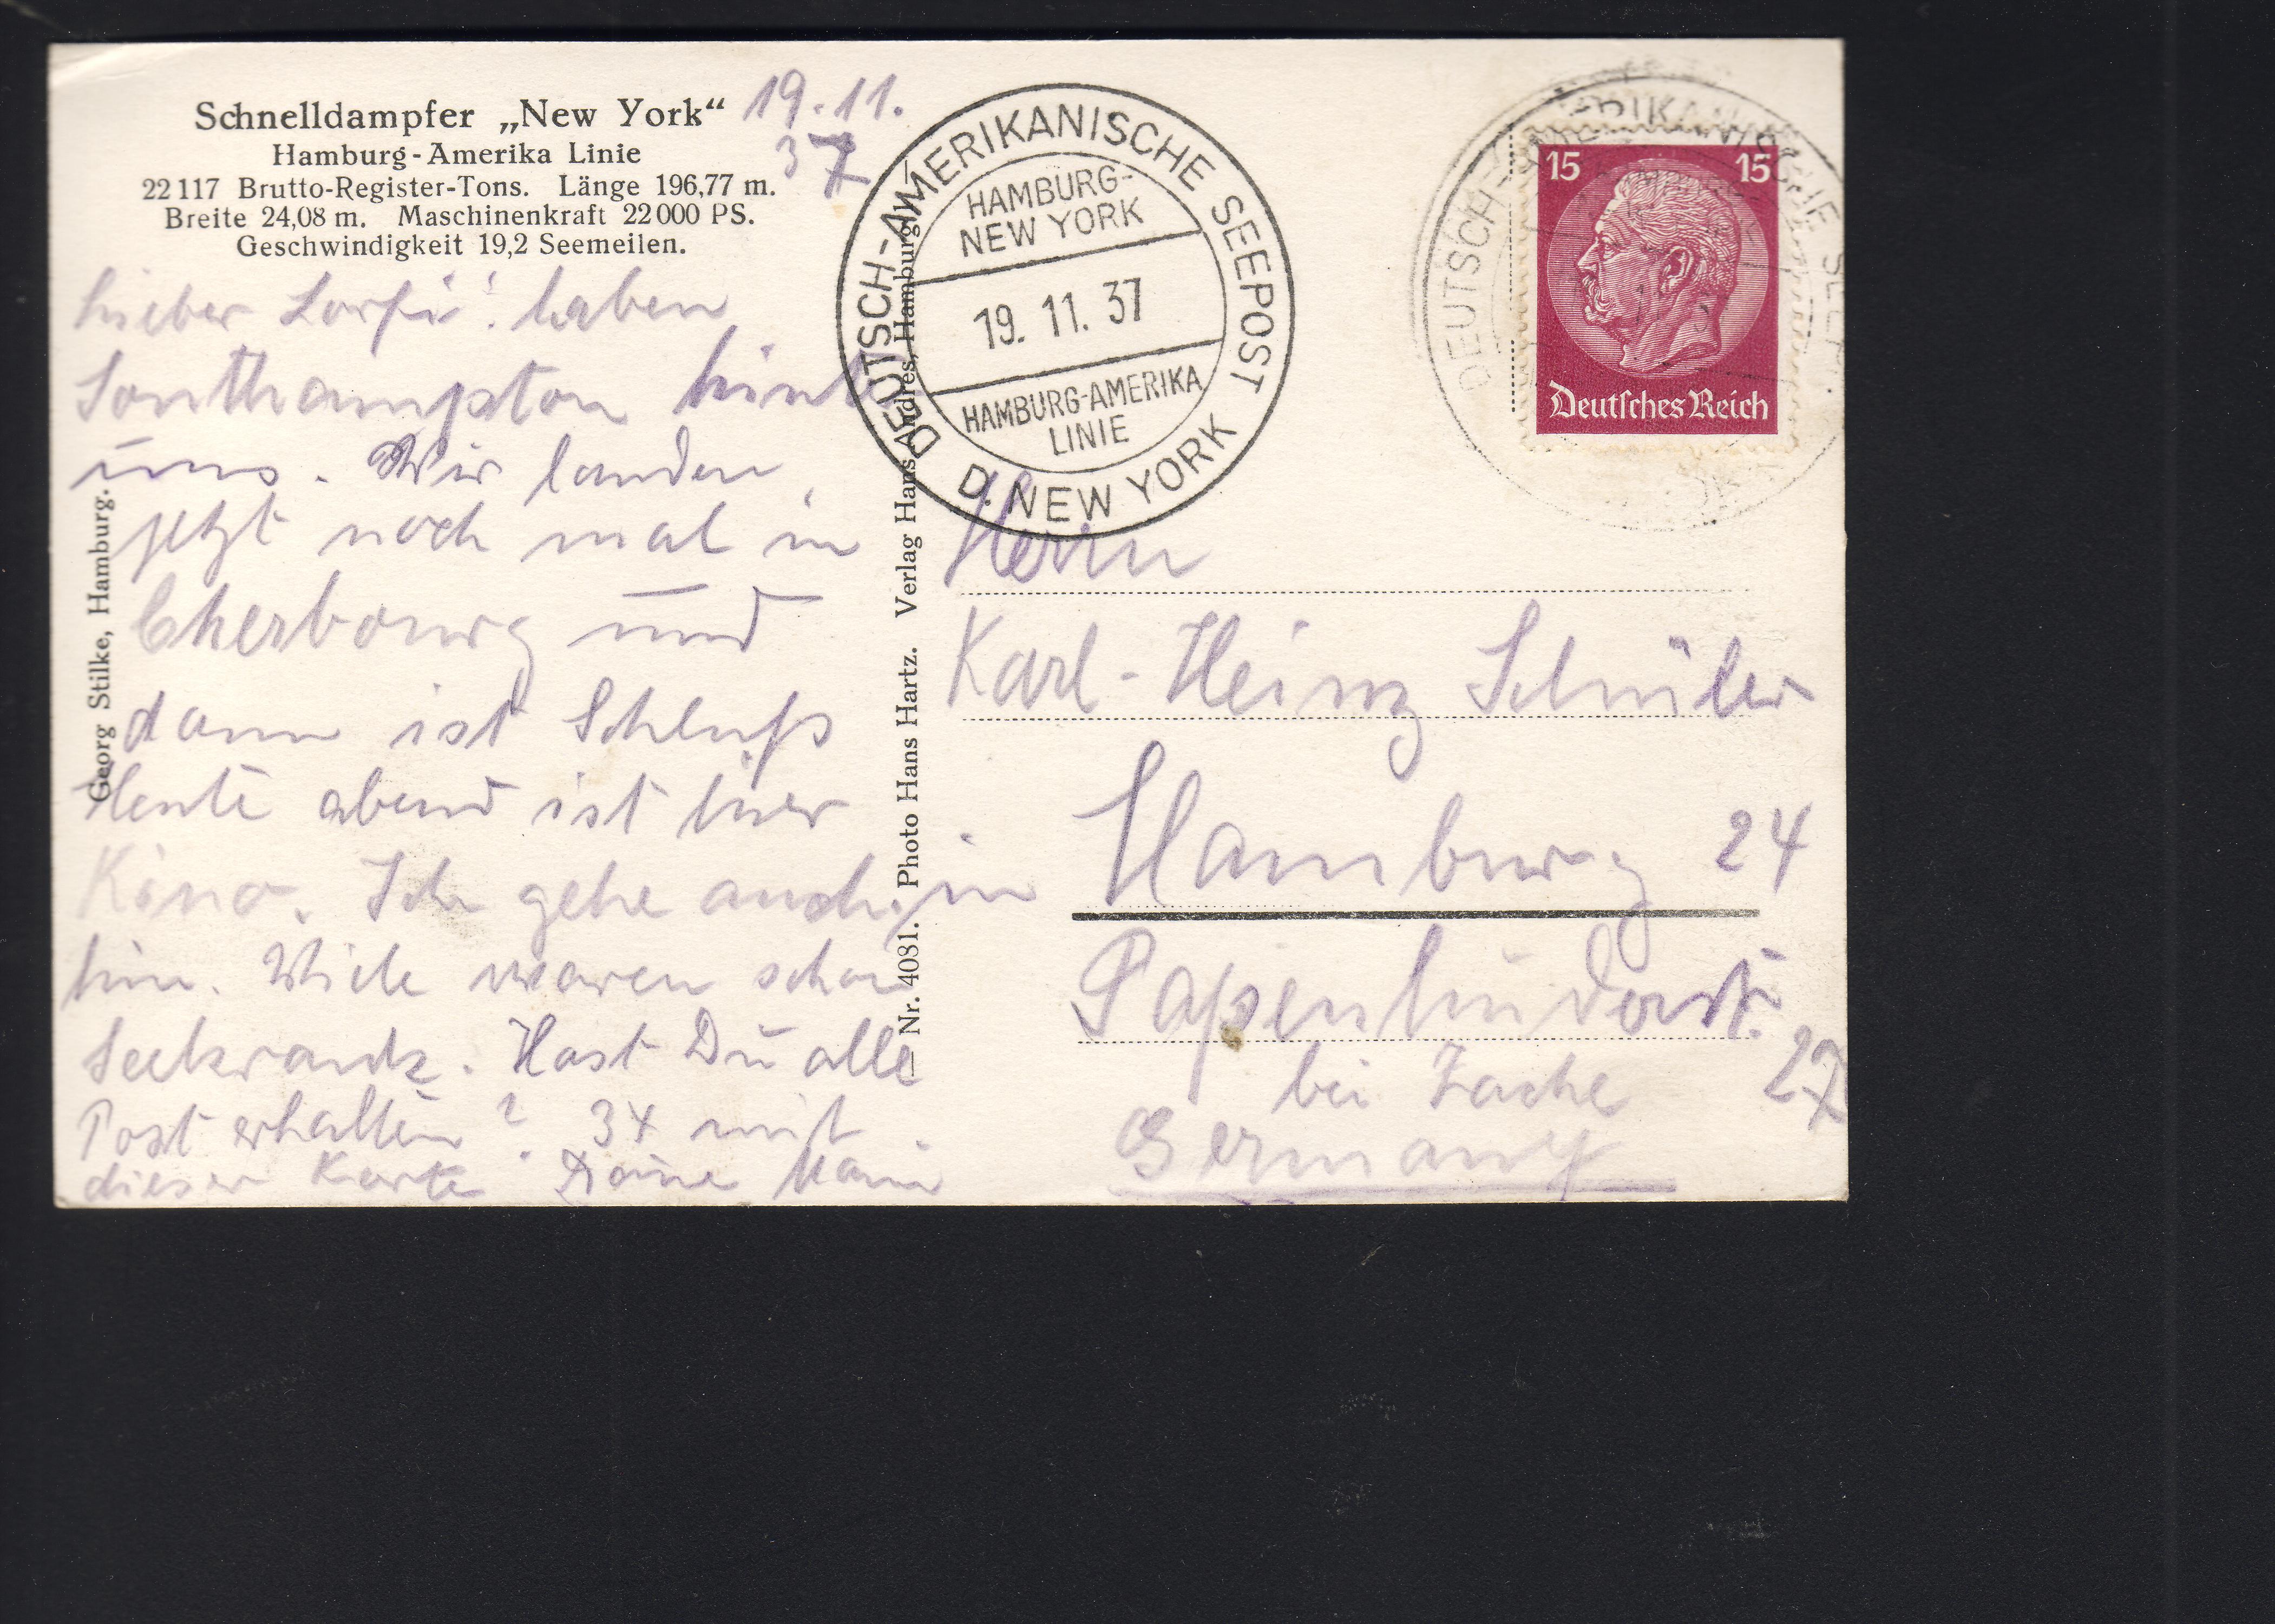 Schnelldampfer „New York“
Hamburg-Amerika Linie
22117 Brutto-Register-Tons. Länge 196,77 m.
Breite 24,08 m. Maschinenkraft 22000 PS.
Geschwindigkeit 19,2 Seemeilen.
19.11.
37
Lieber haben
Southampton hinter
uns. Wir landen
jetzt noch mal in
Cherbourg und
dann ist Schluß
Heute abend ist hier
Kino. Ich gehe auch
hin. Viele waren schon
Seekrank. Hast Du alle
Post erhalten? 3x mit
dieser Karte Deine
Georg Stilke, Hamburg.
— Nr. 4081. Photo Hans Hartz. Verlag Hans Andres, Hamburg.
DEUTSCH-AMERIKANISCHE SEEPOST
HAMBURG-
NEW YORK
19. 11. 37
HAMBURG-AMERIKA
LINIE
D. NEW YORK
DEUTSCH-AMERIKANISCHE SEEPOST
15 15
Deutsches Reich
Herrn
Karl-Heinz Schüler
in Hamburg 24
Papenhuderstr.
27
bei Zache
Germany